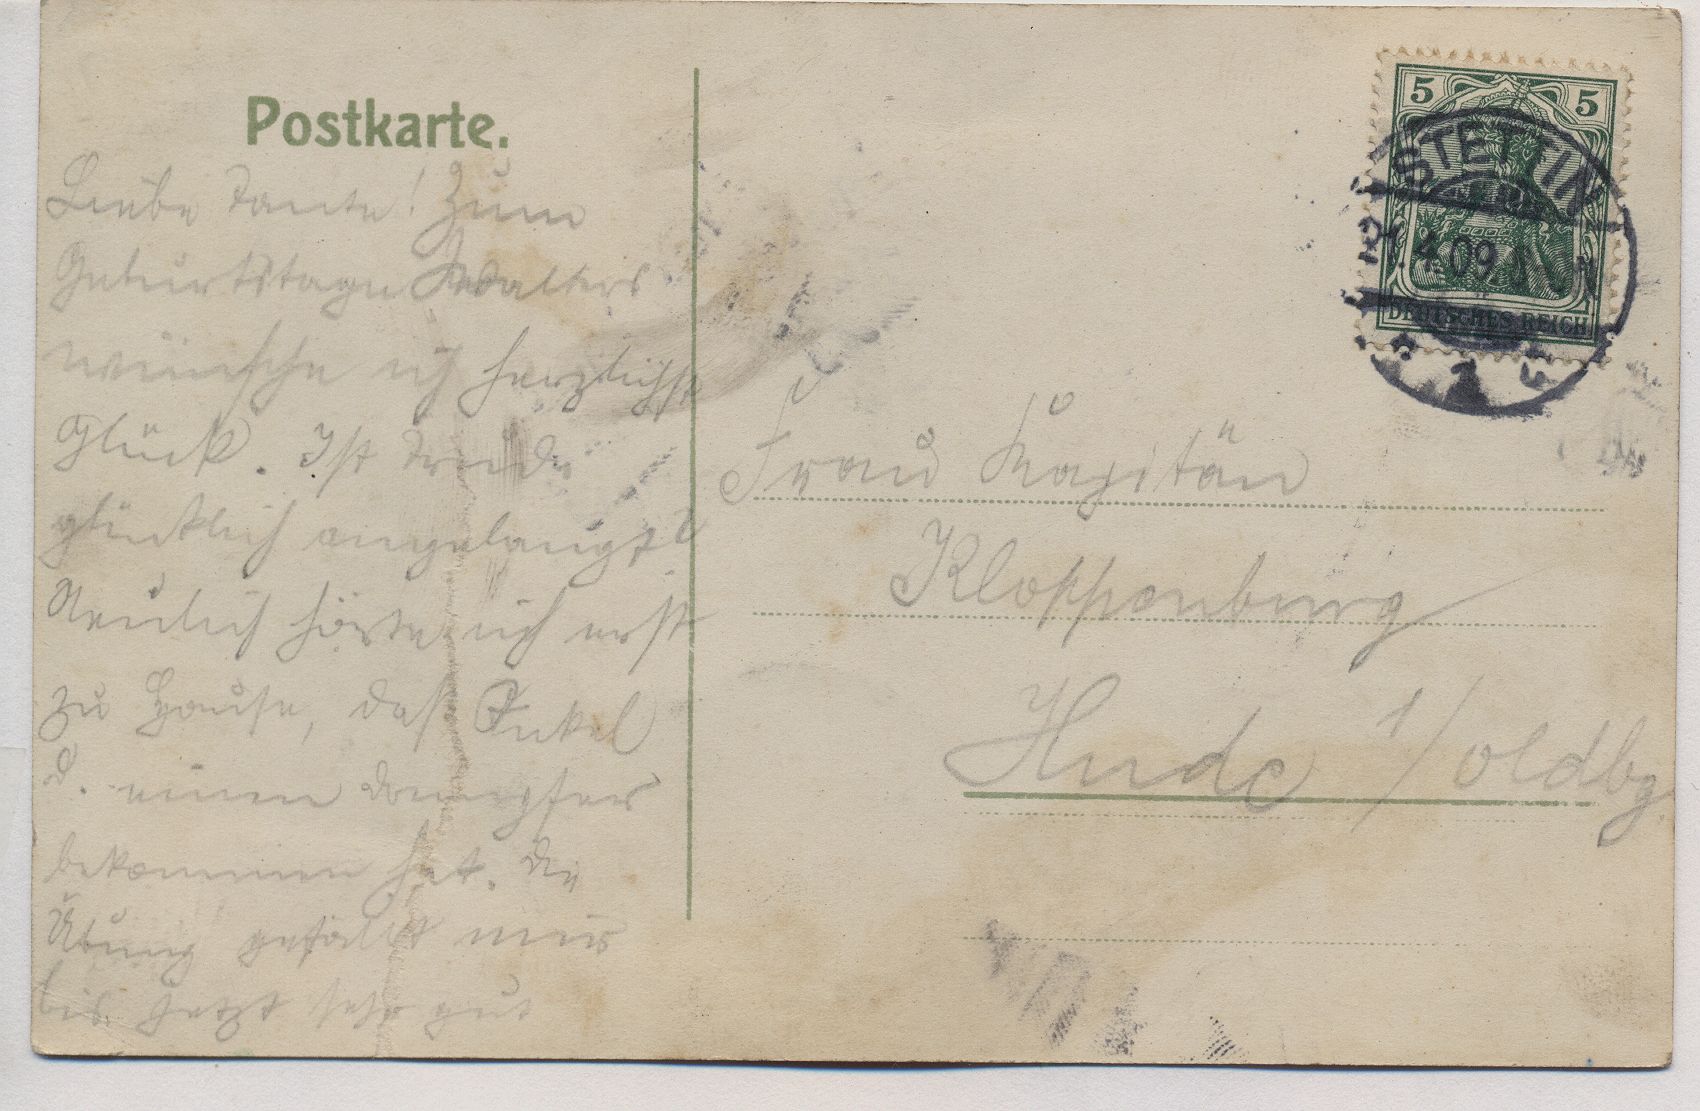 Postkarte.
Liebe Tante! Zum
Geburtstage Walters
wünsche ich herzlichst
Glück. Ist Trude
glücklich angelangt?
Neulich hörte ich erst
zu Hause, daß Onkel
D. einen Dampfer
bekommen hat. Die
Übung gefällt mir
bis jetzt sehr gut
5 5
STETTIN
4.09
DEUTSCHES REICH
1
Frau Kapitän
Kloppenburg
Hude i/Oldbg.